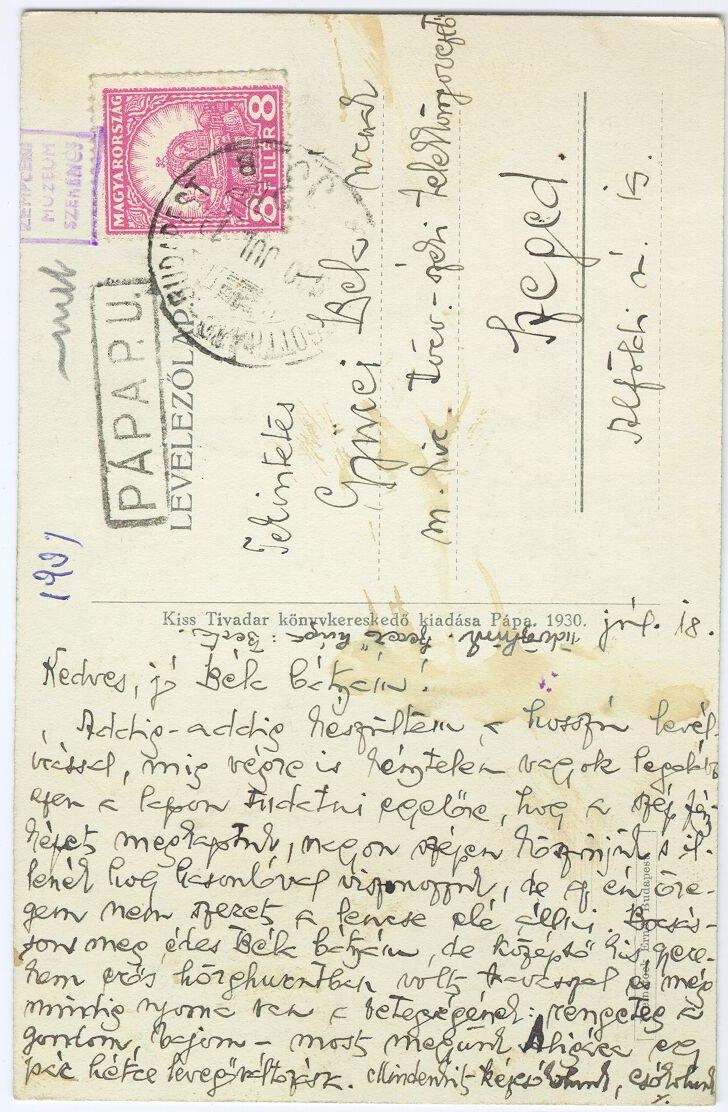 MAGYARORSZÁG
8 FILLÉR 8
ZEMPLÉNI
MÚZEUM
SZERENCS
BUDAPEST
JUL
PÁPA P.U.
LEVELEZŐLAP
1991
Tekintetes
Béla
m. kir.
Szeged.
Alföldi u. 15.
Kiss Tivadar könyvkereskedő kiadása Pápa. 1930.
júl. 18.
Kedves, jó Béla bátyám!
Addig-addig készültem a hosszú levél-
írással, mig végre is kénytelen vagyok legalább
ezen a lapon tudatni egyelőre, hogy a szép fény-
képet megkaptuk, nagyon szépen köszönjük s il-
lenék hogy hasonlóval viszonozzuk, de az én öre-
gem nem szeret a lencse elé állni. Bocsás-
son meg, édes Béla bátyám, de középső kis gyere-
kem erős hörghurutban volt tavasszal és még
mindig nyoma van a betegségének: rengeteg a
gondom, bajom – most megyünk Aligára egy
pár hétre levegőváltozásra. Mindenkit kézcsókolunk, csókolunk